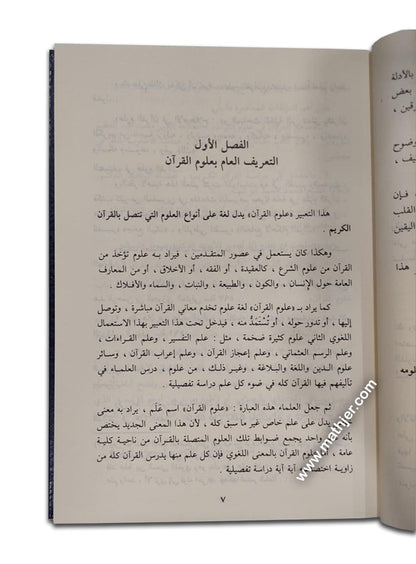 الفصل الأول
التعريف العام بعلوم القرآن
هذا التعبير «علوم القرآن» يدل لغة على أنواع العلوم التي تتصل بالقرآن
الكريم .
وهكذا كان يستعمل في عصور المتقدمين ، فيراد به علوم تؤخذ من
القرآن من علوم الشرع ، كالعقيدة ، أو الفقه ، أو الأخلاق ، أو من المعارف
العامة حول الإنسان ، والكون ، والطبيعة ، والنبات ، والسماء والأفلاك .
كما يراد بـ «علوم القرآن» لغة علوم تخدم معاني القرآن مباشرة ، وتوصل
إليها ، أو تدور حوله ، أو تُسْتَمَدُّ منه ، فيدخل تحت هذا التعبير بهذا الاستعمال
اللغوي الثاني علوم كثيرة ضخمة ، مثل : علم التفسير ، وعلم القراءات ،
وعلم الرسم العثماني ، وعلم إعجاز القرآن ، وعلم إعراب القرآن ، وسائر
علوم الدين واللغة والبلاغة ، وغير ذلك ، من علوم ، درس العلماء في
تآليفهم فيها القرآن كله في ضوء كل علم دراسة تفصيلية .
ثم جعل العلماء هذه العبارة : «علوم القرآن» اسم عَلَم ، يراد به معنى
يدل على علم خاص غير ما سبق كله ، لأن هذا المعنى الجديد يختص
بأنه واحد يجمع ضوابط تلك العلوم المتصلة بالقرآن من ناحية كلية
عامة ، علوم القرآن بالمعنى اللغوي فإن كل علم منها يدرس القرآن كله من
زاوية اختصا آية آية دراسة تفصيلية .
٧
بالأدلة
بعض
رقين ،
وضوح
يف ،
فإن
القلب
اليقين
هذا
لومه
www.mathjer.com